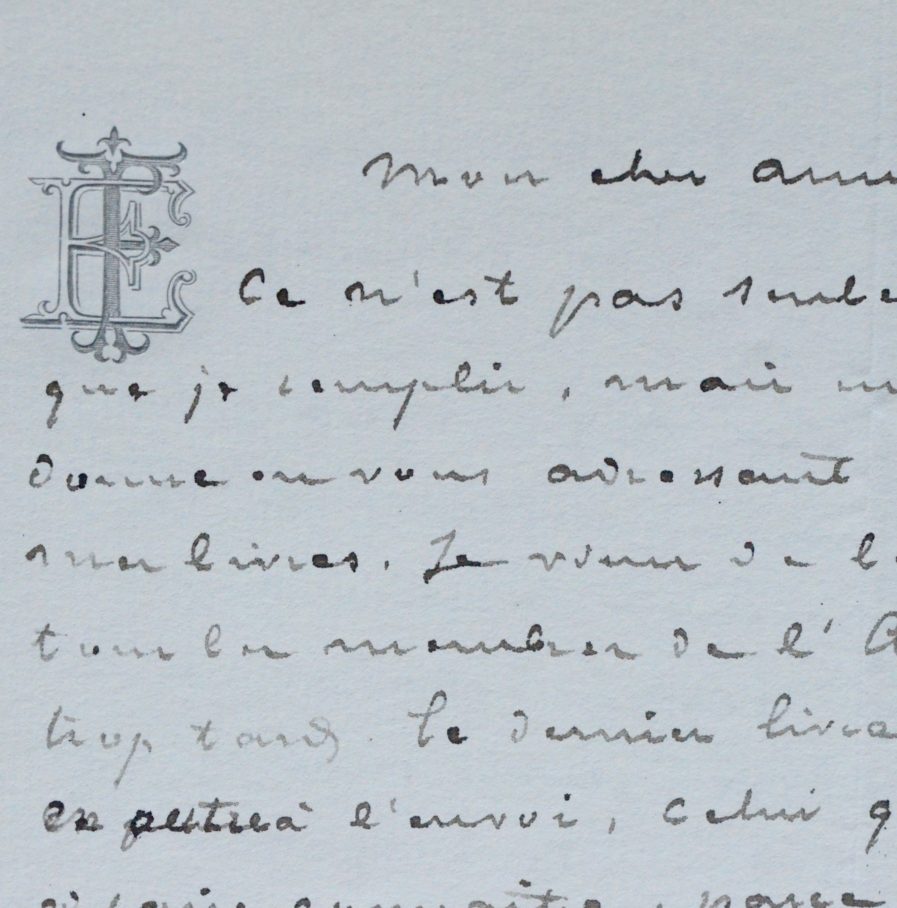 Mon cher ami
Ce n'est pas seule
que je remplir, mais un
donne en vous adressant
mes livres. Je viens de l
tous les membres de l'A
trop tard. Le dernier livre
l'envoi, celui q
connaître, parce